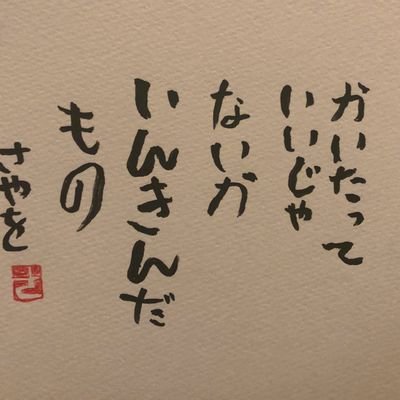 かいたって
いいじゃ
ないか
いんきんだ
もの
さやを